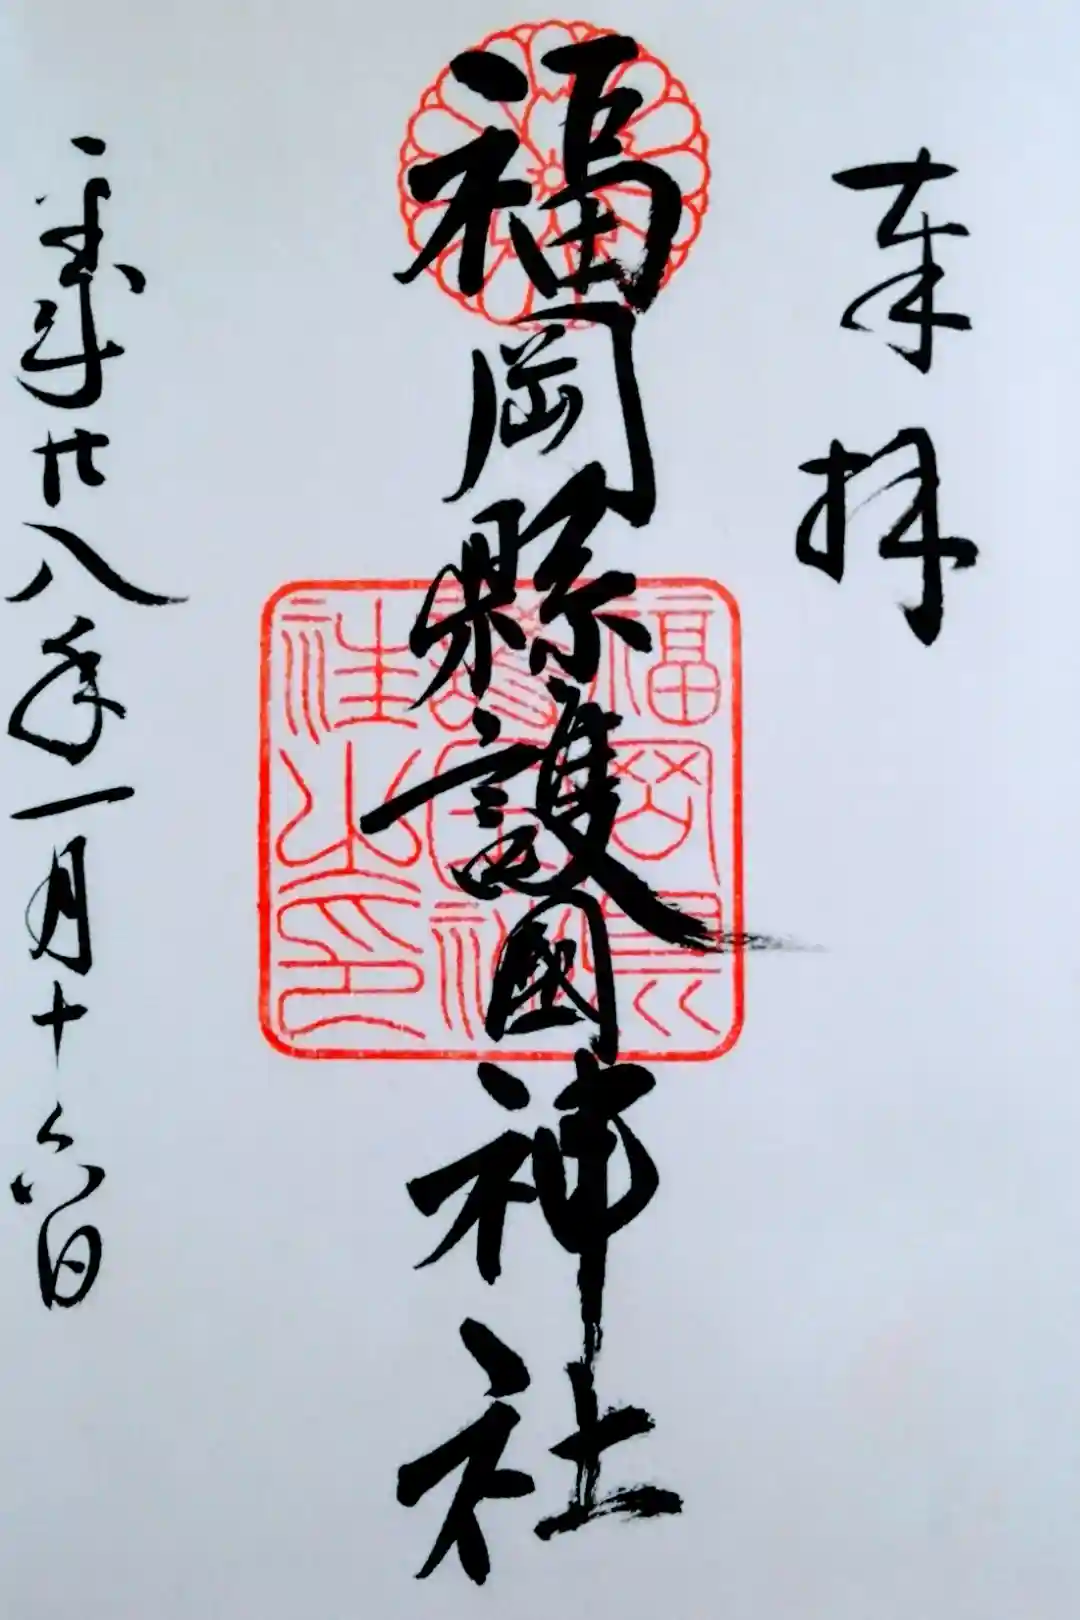 奉拝
福岡縣護國神社
福岡県
護国神
社之印
平成廿八年一月十六日